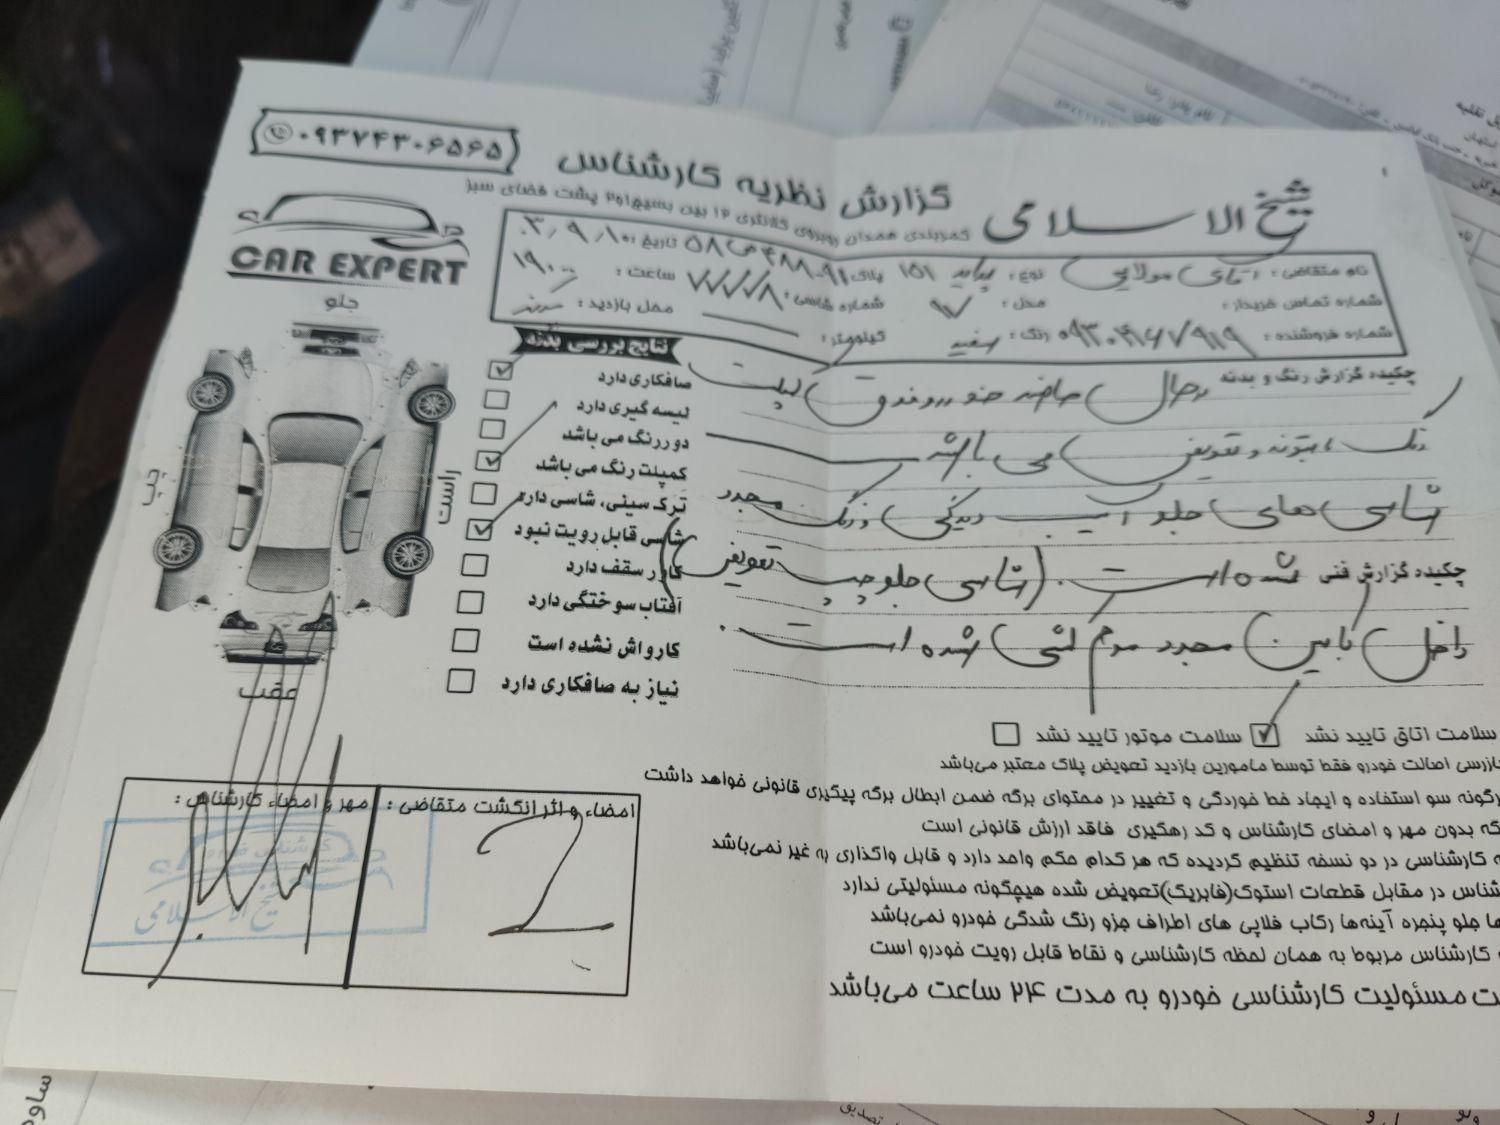 ۰۹۳۷۴۳۰۶۵۶۵
گزارش نظریه کارشناس
شیخ الاسلامی
کمربندی همدان روبروی کلانتری ۱۲ بین بسیج۱و۲ پشت فضای سبز
CAR EXPERT
نام متقاضی: آقای مولایی نوع: پراید ۱۵۱ پلاک: تاریخ:
شماره تماس خریدار: مدل: ۹۷ شماره شاسی: ساعت: ۱۹:۰۰
شماره فروشنده: رنگ: سفید کیلومتر: محل بازدید:
جلو
چپ
راست
عقب
نتایج بررسی بدنه
صافکاری دارد
لیسه گیری دارد
دوررنگ می باشد
کمپلت رنگ می باشد
ترک سینی، شاسی دارد
شاسی قابل رویت نبود
کاور سقف دارد
آفتاب سوختگی دارد
کارواش نشده است
نیاز به صافکاری دارد
چکیده گزارش رنگ و بدنه درحال حاضر خودرو فوق کمپلت
رنگ، بتونه و تعویض می باشد
شاسی های جلو آسیب دیدگی و رنگ مجدد
چکیده گزارش فنی شده است. (شاسی جلو چپ تعویض)
داخل کابین مجدد مرم کشی شده است.
سلامت اتاق تایید نشد سلامت موتور تایید نشد
بازرسی اصالت خودرو فقط توسط مامورین بازدید تعویض پلاک معتبر می‌باشد
هرگونه سو استفاده و ایجاد خط خوردگی و تغییر در محتوای برگه ضمن ابطال برگه پیگیری قانونی خواهد داشت
بدون مهر و امضای کارشناس و کد رهگیری فاقد ارزش قانونی است
کارشناسی در دو نسخه تنظیم گردیده که هر کدام حکم واحد دارد و قابل واگذاری به غیر نمی‌باشد
در مقابل قطعات استوک(فابریک)تعویض شده هیچگونه مسئولیتی ندارد
جلو پنجره آینه‌ها رکاب فلاپی های اطراف جزو رنگ شدگی خودرو نمی‌باشد
کارشناس مربوط به همان لحظه کارشناسی و نقاط قابل رویت خودرو است
مسئولیت کارشناسی خودرو به مدت ۲۴ ساعت می‌باشد
امضاء و اثر انگشت متقاضی:
مهر و امضاء کارشناس:
شیخ الاسلامی